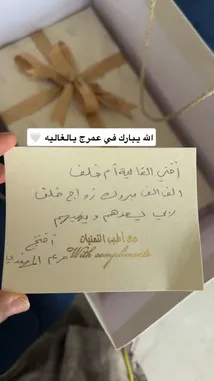 الله يبارك في عمرج يالغاليه 🤍
أختي الغالية أم خلف
الف الف مبروك زواج خلف
ربي يسعدهم ويهنيهم
مع أطيب التمنيات
With compliments
أختج
مريم